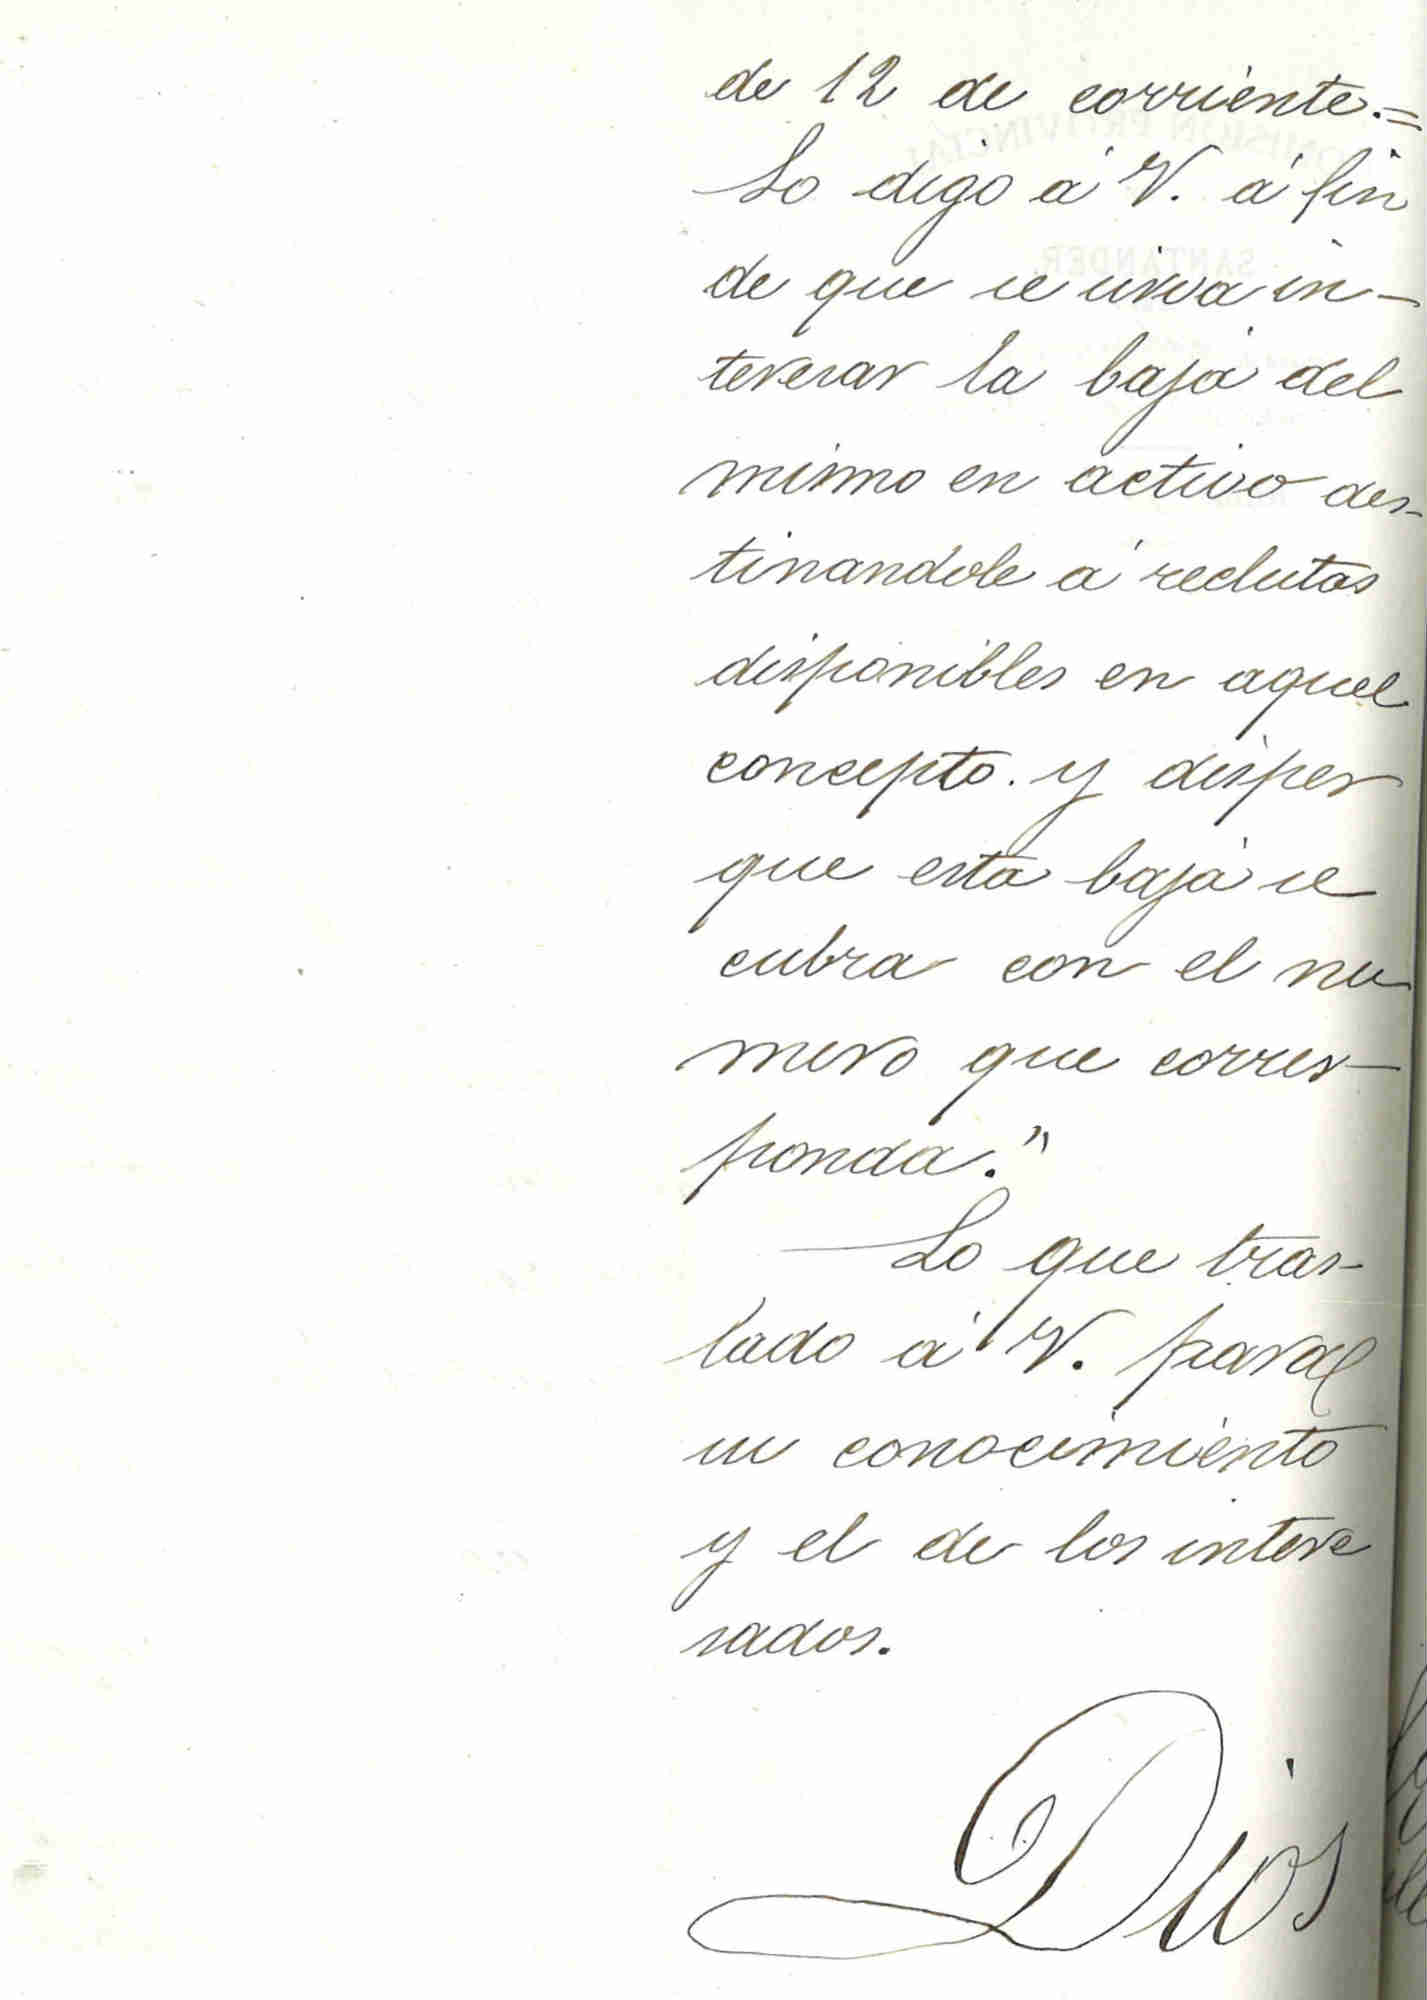 de 12 de corriente.=
Lo digo á V. á fin
de que se sirva in-
teresar la baja del
mismo en activo des-
tinandole á reclutas
disponibles en aquel
concepto. y disper
que esta baja se
cubra con el nu
mero que corres-
ponda."
Lo que tras-
lado á V. para
su conocimiento
y el de los intere
sados.
Dios
COMISIÓN PROVINCIAL
SANTANDER.